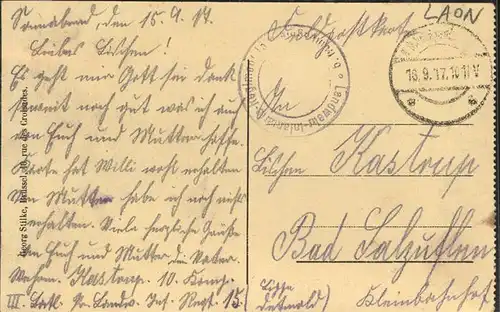 Sonnabend, den 15.9.17.
Liebes Lieschen!
Es geht mir Gott sei dank
soweit noch gut was ich auch
von Euch und Mutter hoffe.
Karte hat Willi wohl erhalten
von Mutter habe ich noch nichts
erhalten. Viele herzliche Grüße
an Euch und Mutter Vater.
Wehrm. Kastrup. 10. Komp.
III. Batl. Landw. Inf. Regt. 15.
Georg Stilke, Brüssel, rue des Croisades.
Feldpostkarte
LAON
16.9.17. 10-11V
Landwehr-Infanterie-Regiment 15
An
Lieschen Kastrup
Bad Salzuflen
(Lippe
Detmold) Kleinbahnhof